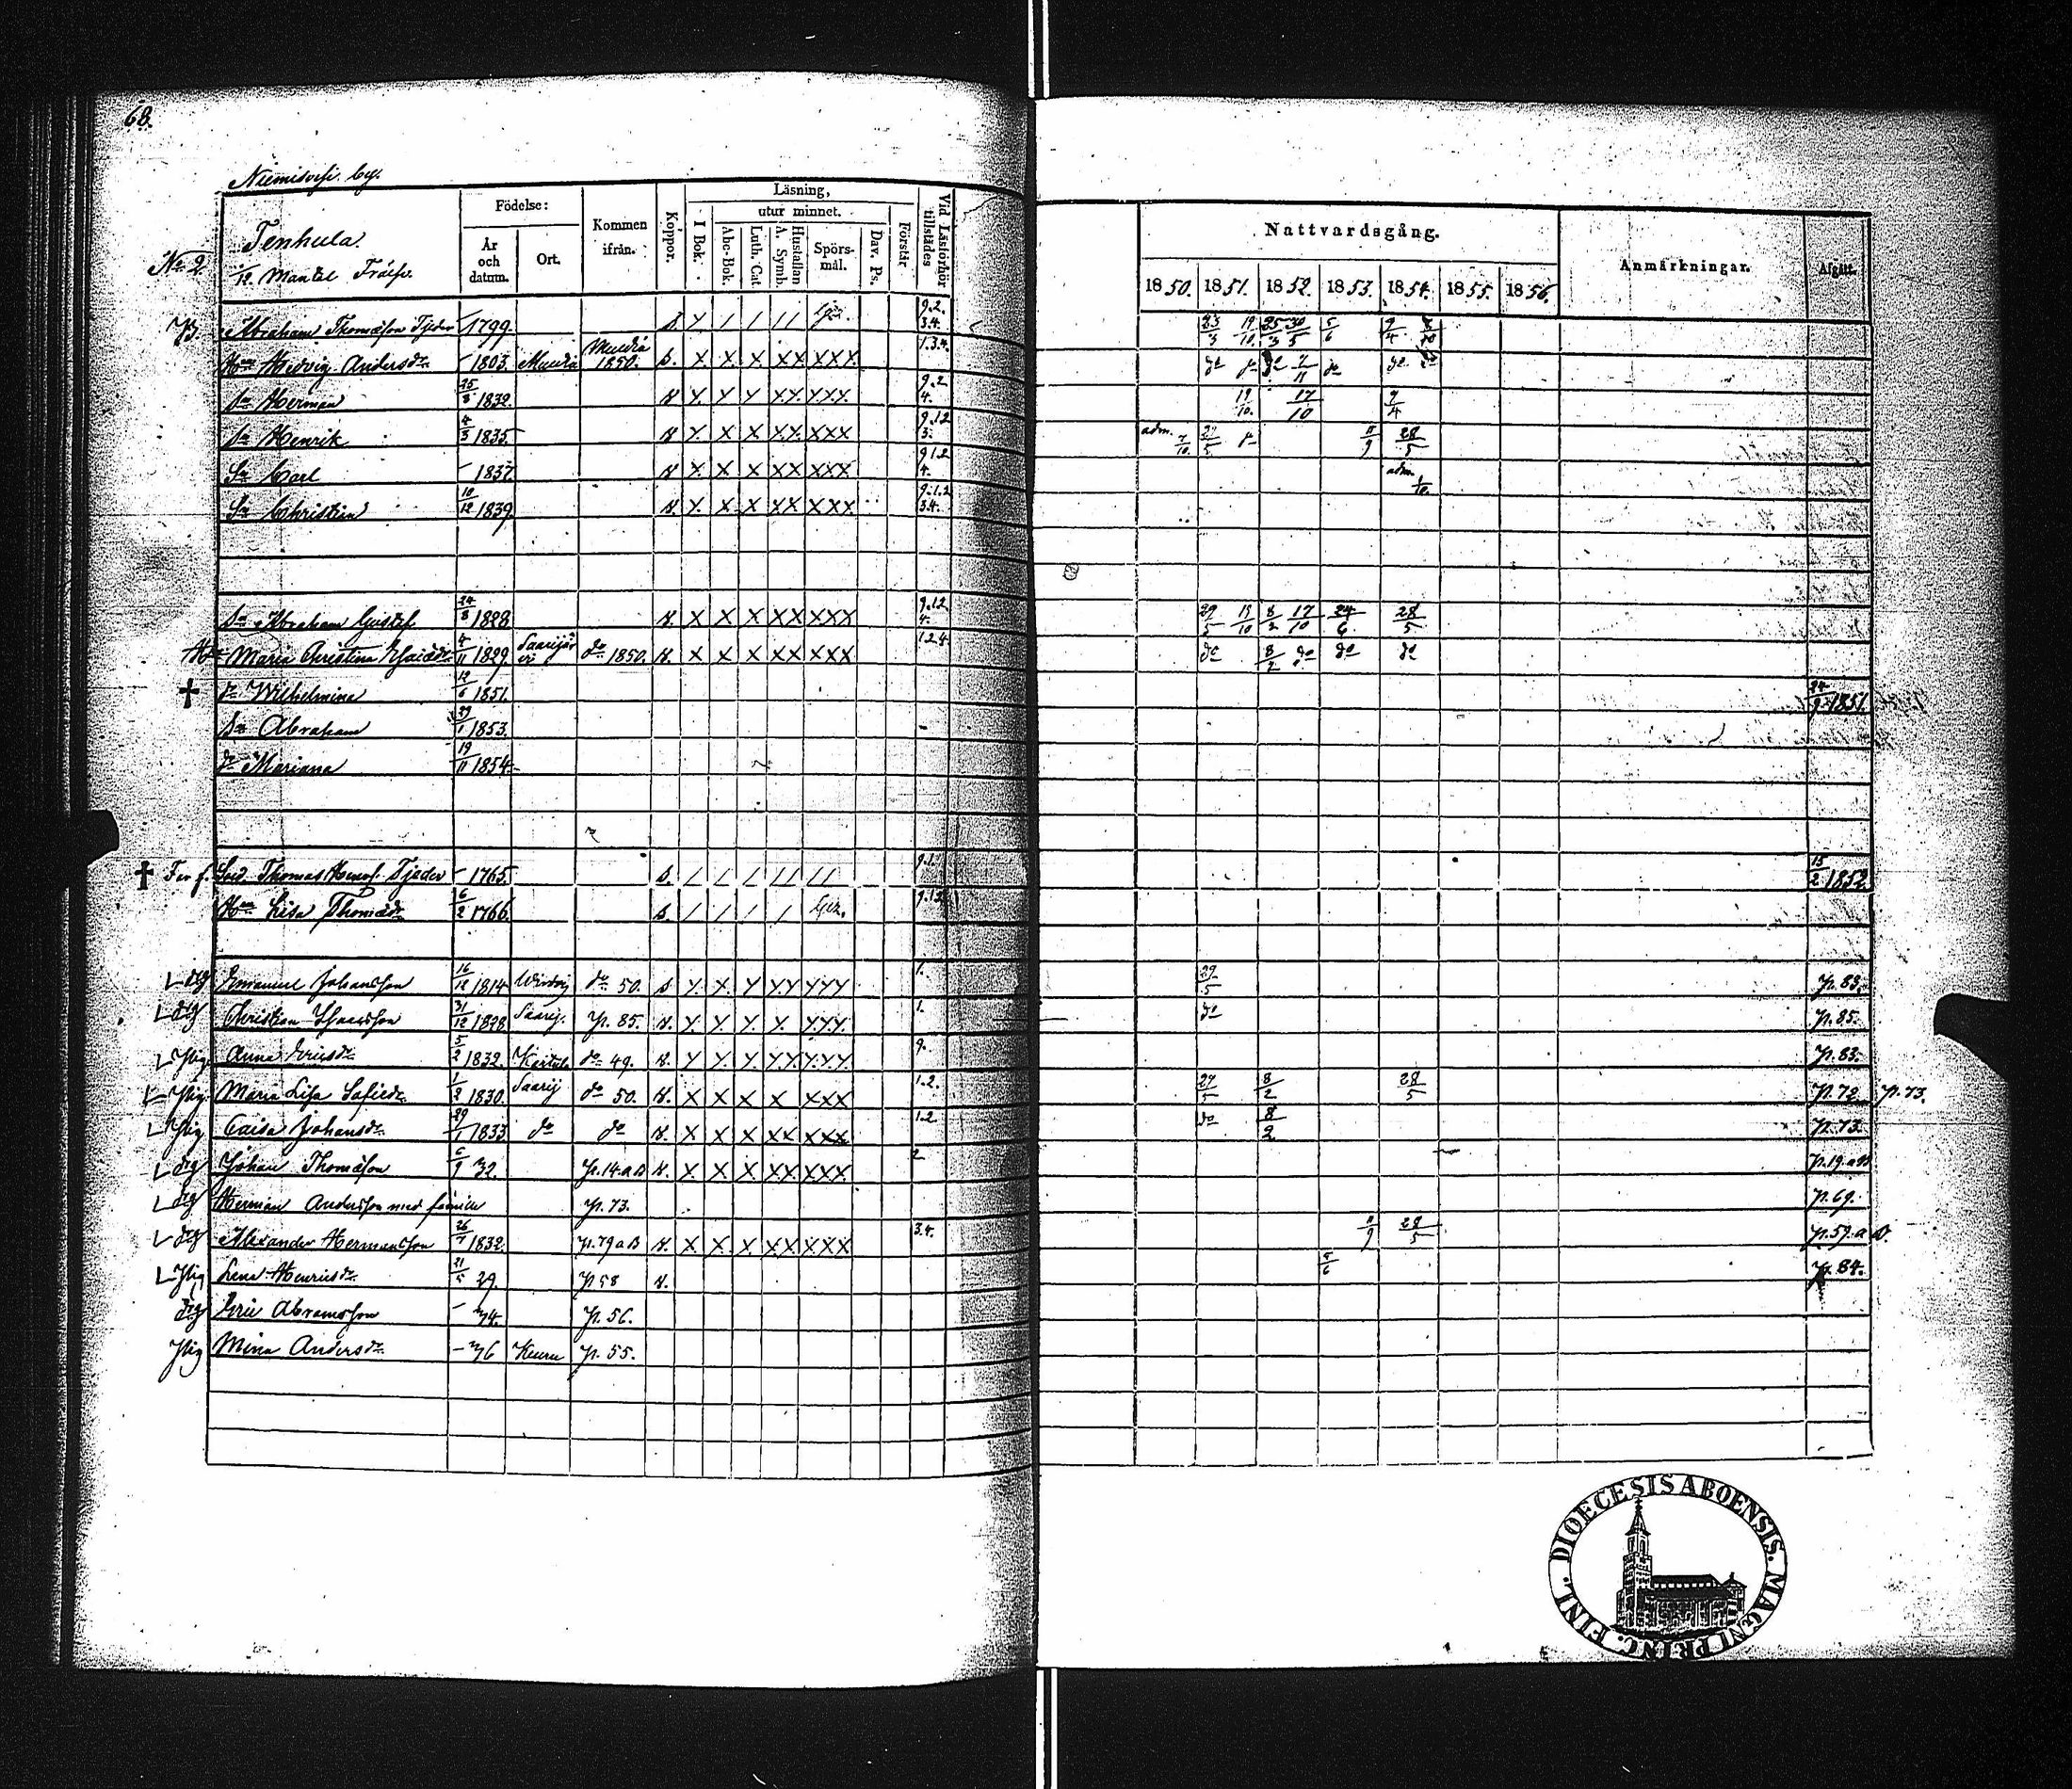 68.
Niemisvesi by.
No 2. Tenhula.
1/12 Mantal Frälse.
Födelse: År och datum. Ort.
Kommen ifrån.
Koppor.
Läsning,
I Bok.
utur minnet.
Abc-Bok. Luth. Cat. A. Symb. Hustaflan Spörsmål. Dav. Ps.
Förstår
Vid Läsförhör tillstädes
Nattvardsgång.
1850. 1851. 1852. 1853. 1854. 1855. 1856.
Anmärkningar.
Afgått.
B. Abraham Thomasson Tjeder - 1799. s. 9.2. 3.4. 23/3 19/10 25/3 30/5 5/6
Hu Hedvig Andersdr - 1803. Multia Multia 1850. s. X. X. X. XX XXX. 1.3.4.
Sn Herman 25/8 1832. 9.2 4. 19/10. 17/10 9/4
Sn Henrik 4/3 1835. X X X XX XXX 9.12 3. adm. 7/10. 28/5
Sn Carl - 1837. X X X XX XXX 9.1.2 4. adm. 1/10.
Sn Christian 10/12 1839. X X X XX XXX 9.1.2 3.4.
Sn Abraham Gustaf 24/8 1828 X X X XX XXX 9.12 4. 29/5 19/10 8/2 17/10 24/6 28/5
Hu Maria Christina Esaiædr 4/11 1829. Saarijärvi do 1850. X X X XX XXX 1.2.4. do 8/2 do do do
† dr Wilhelmina 12/6 1851. 24/9 1851.
Sn Abraham 29/1 1853.
dr Mariana 19/11 1854.
† Far f. Sold. Thomas Henrs. Tjeder - 1765. s. / / / // // 9.1. 15/2 1852
Hu Lisa Thomædr 6/2 1766. s. / / / / 9.12
dg Emanuel Johansson 16/12 1814 Wirdois do 50. s 1. 29/5 p. 83.
dg Christian Isaacsson 31/12 1828 Saarij. p. 85. 1. do p. 85.
Pig Anna Ericsdr 5/2 1832. do 49. 9. p. 83.
Pig Maria Lisa 1/2 1830. Saarij do 50. X X X X XXX 1.2. 8/2 28/5 p. 72 p. 73.
Pig Caisa Johansdr 29/1 1833 do do X X X XX XXX 1.2 do 8/2 p. 73.
dg Johan Thomasson 6/9 32. p. 14.a.B X X X XX XXX 2 p. 19.a.B
dg Herman Andersson med familie p. 73. p. 69.
dg Alexander Hermansson 26/7 1832. p. 79 a.B X X X XX XXX 3.4. 28/5 p. 59. a B.
Pig Lena Henricsdr 21/5 29. p 58 5/6 p. 84.
dg Eric Abramsson - 34. p. 56.
Pig Mina Andersdr - 36 Keuru p. 55.
DIOECESIS ABOENSIS. MAGNI PRINC. FINL.